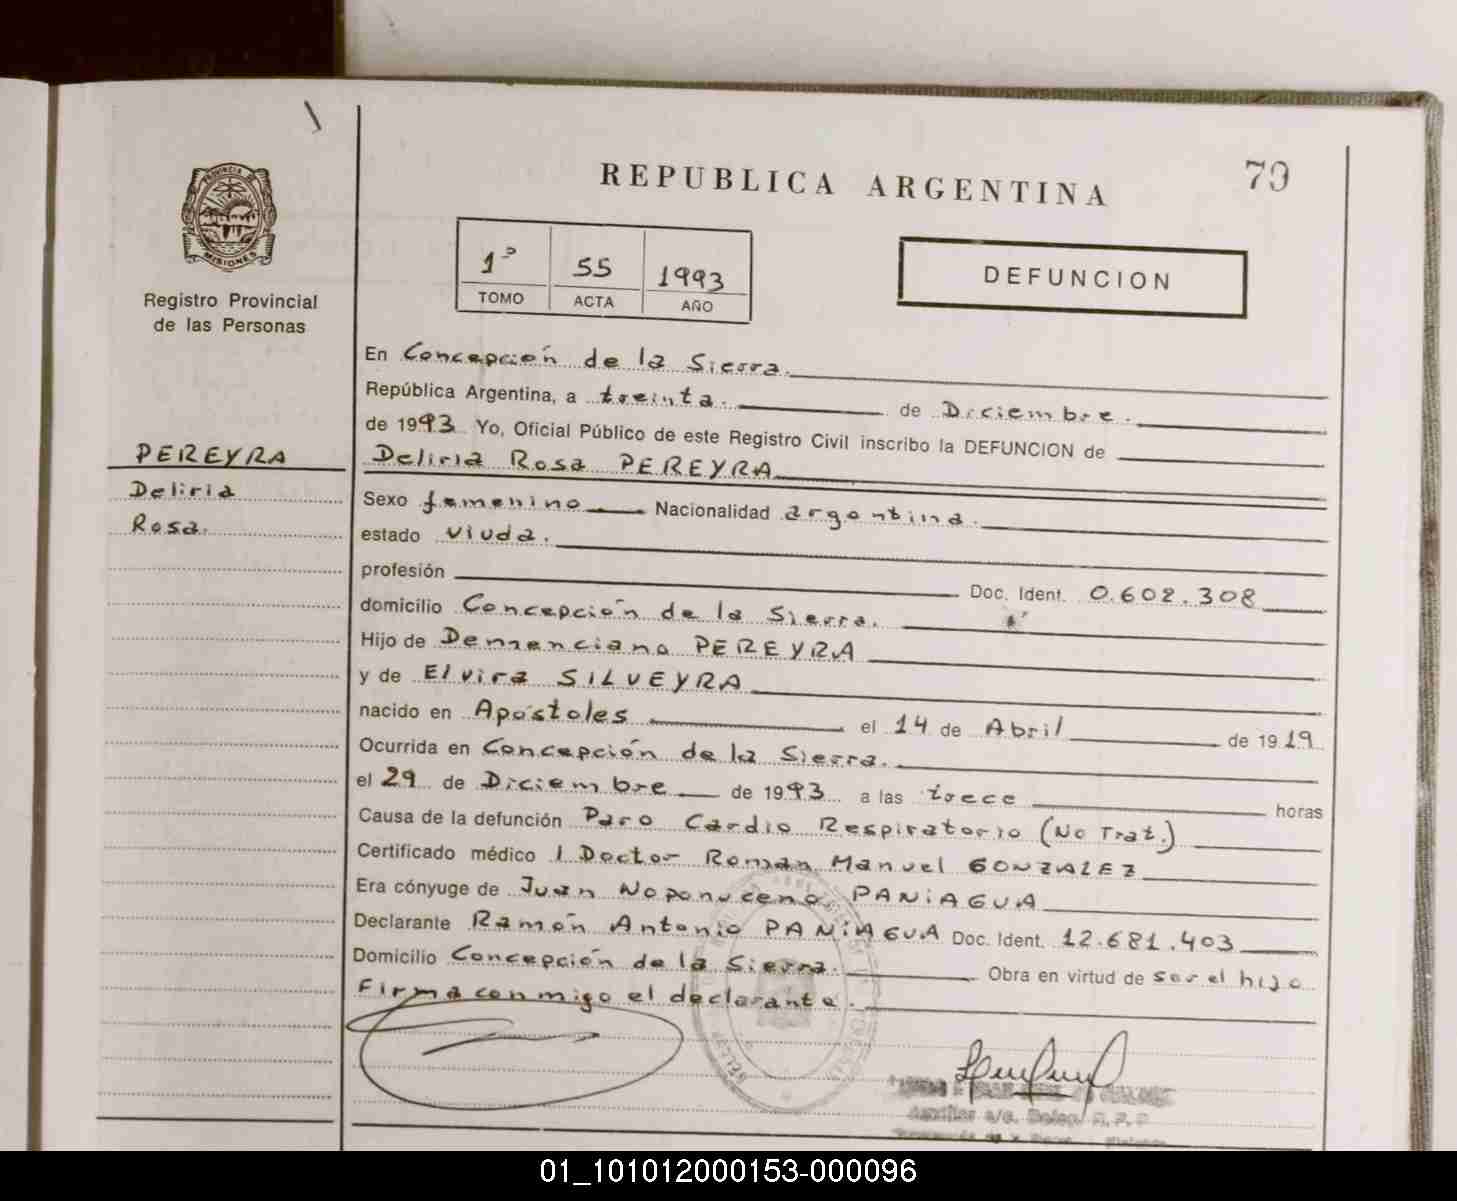 REPUBLICA ARGENTINA
79
PROVINCIA DE
MISIONES
Registro Provincial
de las Personas
1º 55 1993
TOMO ACTA AÑO
DEFUNCION
PEREYRA
Deliria
Rosa.
En Concepción de la Sierra.
República Argentina, a treinta. de Diciembre.
de 1993 Yo, Oficial Público de este Registro Civil inscribo la DEFUNCION de
Deliria Rosa PEREYRA
Sexo femenino Nacionalidad argentina.
estado viuda.
profesión Doc. Ident. 0.602.308
domicilio Concepción de la Sierra.
Hijo de Demenciano PEREYRA
y de Elvira SILVEYRA
nacido en Apóstoles el 14 de Abril de 1919
Ocurrida en Concepción de la Sierra.
el 29 de Diciembre de 1993 a las trece horas
Causa de la defunción Paro Cardio Respiratorio (No Trat.)
Certificado médico | Doctor Roman Manuel GONZALEZ
Era cónyuge de Juan Noponuceno PANIAGUA
Declarante Ramón Antonio PANIAGUA Doc. Ident. 12.681.403
Domicilio Concepción de la Sierra. Obra en virtud de ser el hijo
Firma conmigo el declarante.
Auxiliar a/c. Deleg. R. P. P
01_101012000153-000096